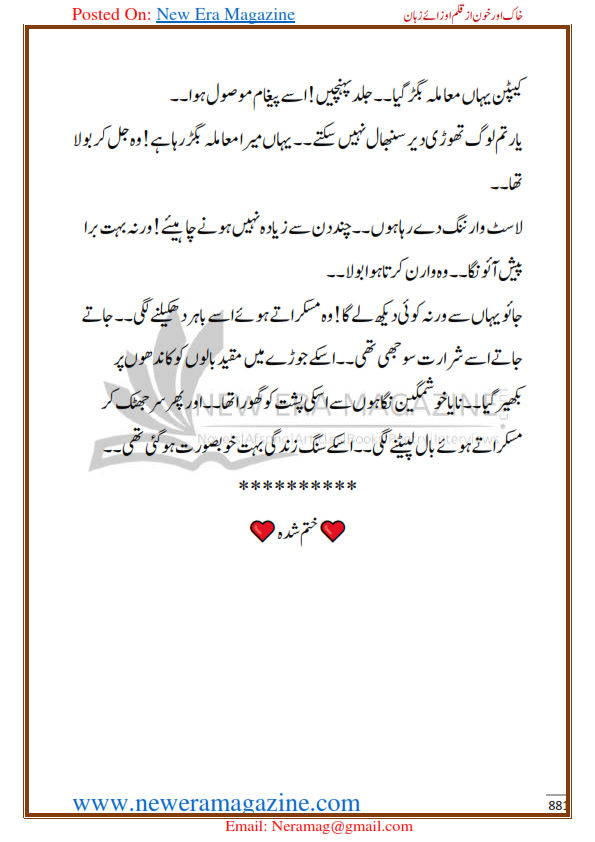 Posted On: New Era Magazine
خاک اور خون از قلم اوزائے زہان
کیپٹن یہاں معاملہ بگڑ گیا۔۔ جلد پہنچیں! اسے پیغام موصول ہوا۔۔
یار تم لوگ تھوڑی دیر سنبھال نہیں سکتے۔۔ یہاں میرا معاملہ بگڑ رہا ہے! وہ جل کر بولا
تھا۔۔
لاسٹ وارننگ دے رہا ہوں۔۔ چند دن سے زیادہ نہیں ہونے چاہیئے! ورنہ بہت برا
پیش آئونگا۔۔ وہ وارن کرتا ہوا بولا۔۔
جائو یہاں سے ورنہ کوئی دیکھ لے گا! وہ مسکراتے ہوئے اسے باہر دھکیلنے لگی۔۔ جاتے
جاتے اسے شرارت سوجھی تھی۔۔ اسکے جوڑے میں مقید بالوں کو کاندھوں پر
بکھیر گیا۔۔ نایا خوشمگین نگاہوں سے اسکی پشت کو گھورا تھا۔۔ اور پھر سر جھٹک کر
مسکراتے ہوئے بال لپیٹنے لگی۔۔ اسکے سنگ زندگی بہت خوبصورت ہو گئی تھی۔۔
NEW ERA MAGAZINE
Novels|Afsana|Articles|Books|Poetry|Interviews
**********
❤ختم شدہ❤
www.neweramagazine.com
881
Email: Neramag@gmail.com